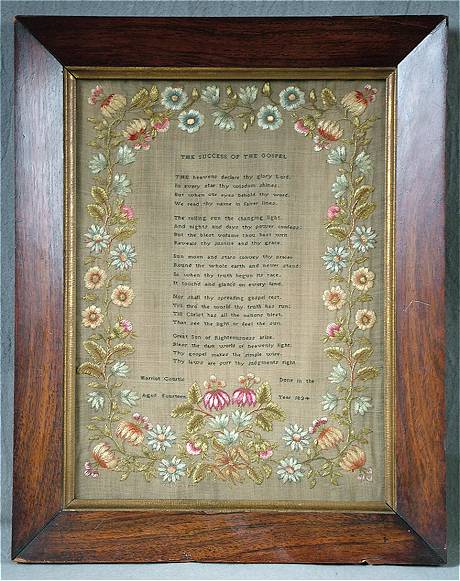 THE SUCCESS OF THE GOSPEL
THE heavens declare thy glory Lord.
In every star thy wisdom shines.
But when our eyes behold thy word.
We read thy name in fairer lines.
The rolling sun the changing light.
And nights and days thy power confess.
But the blest volume thou hast writ
Reveals thy justice and thy grace.
Sun moon and stars convey thy praise
Round the whole earth and never stand.
So when thy truth begun its race,
It touch'd and glanc'd on every land.
Nor shall thy spreading gospel rest,
Till thro' the world thy truth has run;
Till Christ has all the nations blest,
That see the light or feel the sun.
Great Sun of Righteousness arise,
Bless the dark world with heavenly light;
Thy gospel makes the simple wise,
Thy laws are pure thy judgments right.
Harriot Done in the
Aged Fourteen Year 1824